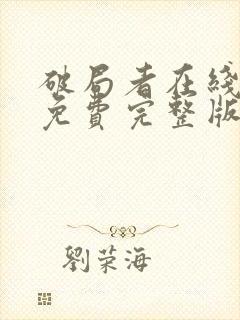 破局者在綫
免費完整版
劉荣海